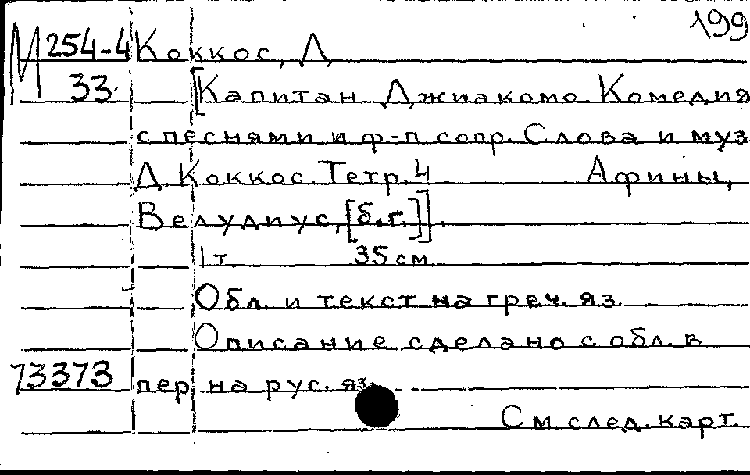 199
М 254-4 Коккос, Д.
33. [Капитан Джиакомо. Комедия
с песнями и ф-п сопр. Слова и муз
Д. Коккос. Тетр. 4 Афины,
Велудиус, [б.г.]].
1 т. 35 см
Обл. и текст на греч. яз.
Описание сделано с обл. в
73373 пер. на рус. яз.
См. след. карт.